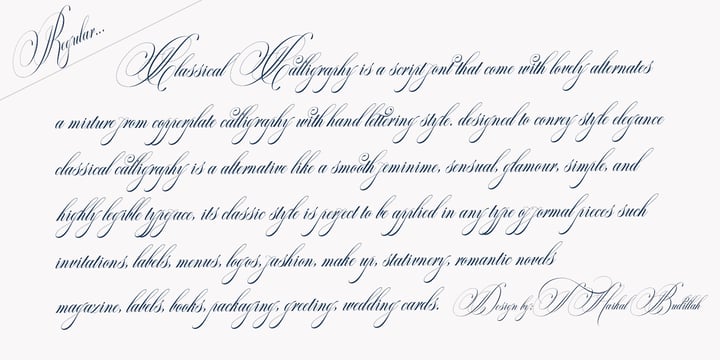 Regular...
Classical Calligraphy is a script font that come with lovely alternates
a mixture from copperplate calligraphy with hand lettering style. designed to convey style elegance
classical calligraphy is a alternative like a smooth feminime, sensual, glamour, simple, and
highly legible typeface, its classic style is perfect to be applied in any type of formal pieces such
invitations, labels, menus, logos, fashion, make up, stationery, romantic novels
magazine, labels, books, packaging, greeting, wedding cards.
Design by: